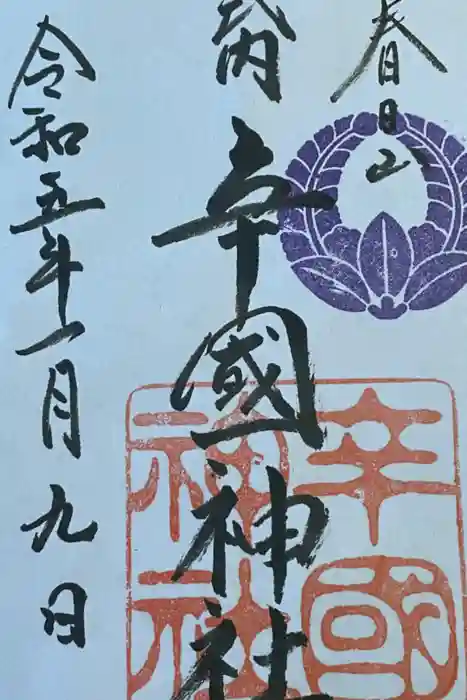 春日山
式内
辛國神社
令和五年一月九日
辛國
神社